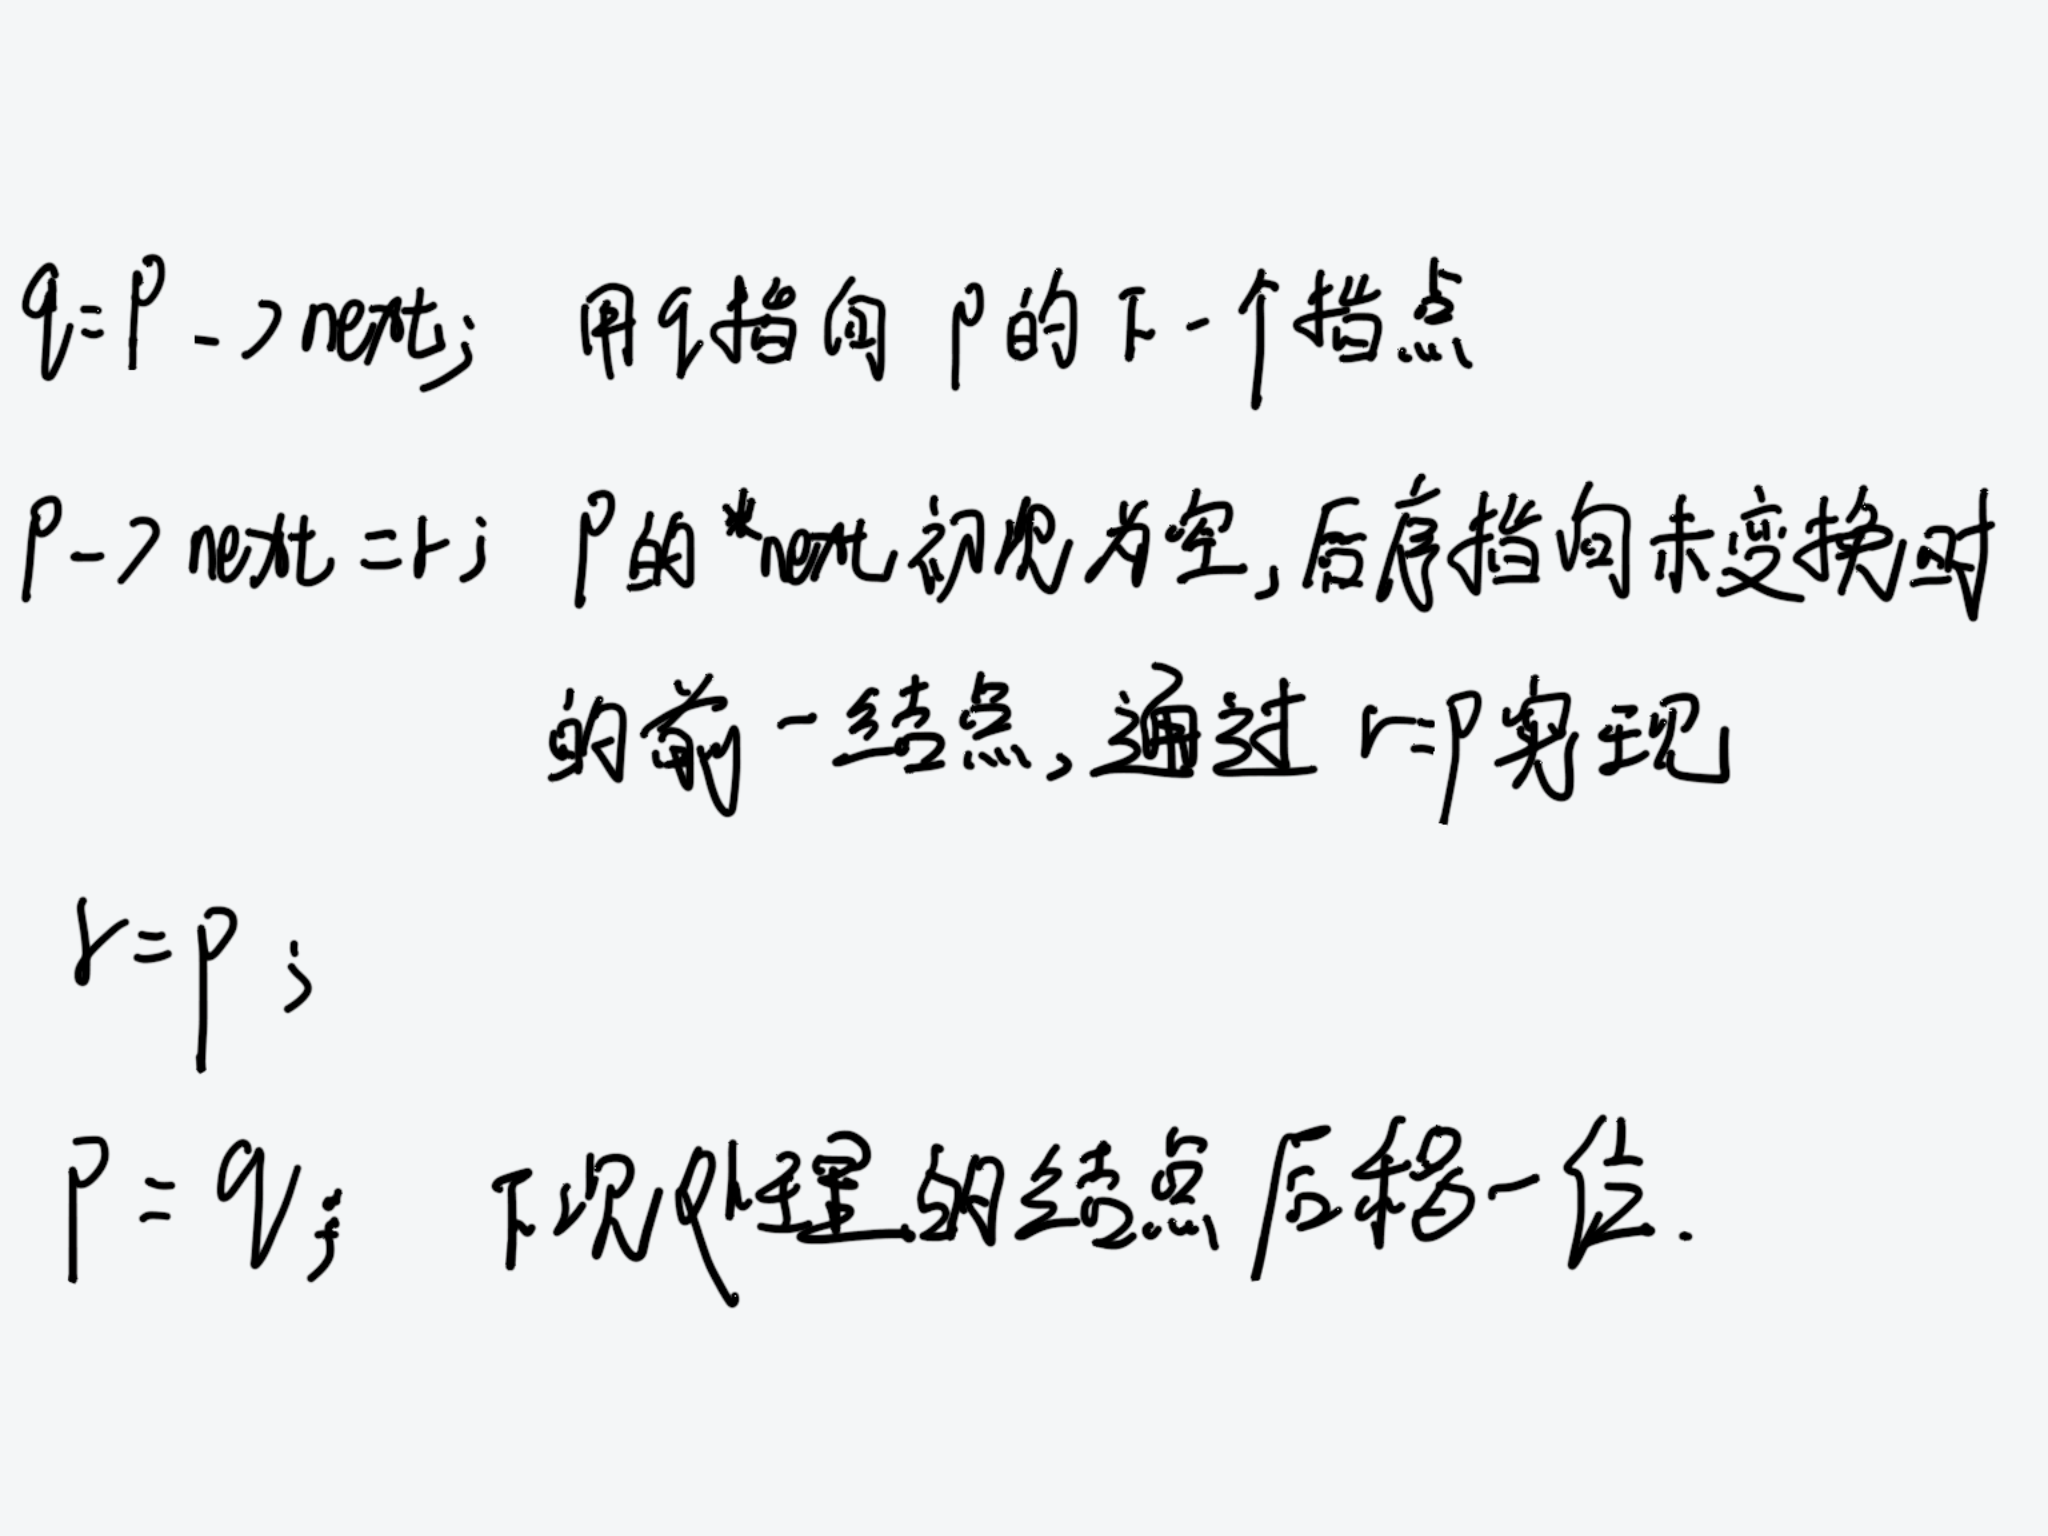 q=p->next; 用q指向p的下一个指点
p->next=r; p的*next初始为空,后序指向未变换时
的前一结点,通过r=p实现
r=p;
p=q; 下现处理的结点后移一位.